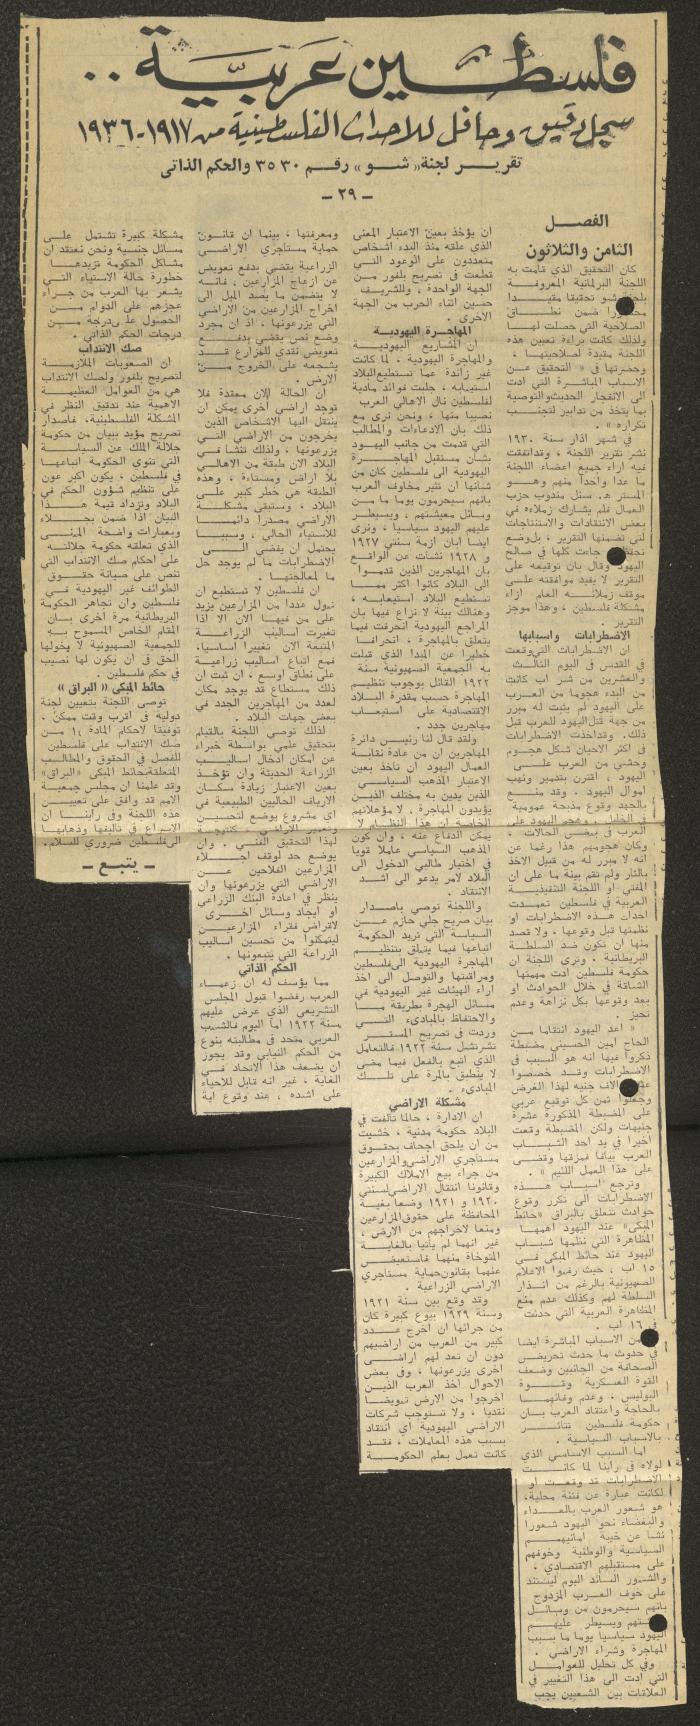 فلسطين عربية ..
سجل دقيق وحافل للاحداث الفلسطينية من ١٩١٧-١٩٣٦
تقرير لجنة « شو » رقم ٣٥٣٠ والحكم الذاتى
- ٢٩ -
الفصل
الثامن والثلاثون
كان التحقيق الذي قامت به
اللجنة البرلمانية المعروفة
بلجنة شو تحقيقا مقيدا
ضمن نطاق
الصلاحية التي حصلت لها
ولذلك كانت براءة تعيين هذه
اللجنة مقيدة لصلاحيتها ،
وحصرتها في « التحقيق عن
الاسباب المباشرة التي ادت
الى الانفجار الحديث والتوصية
بما يتخذ من تدابير لتجنب
تكراره » .
في شهر اذار سنة ١٩٣٠
نشر تقرير اللجنة ، وقد اتفقت
فيه اراء جميع اعضاء اللجنة
ما عدا واحدا منهم وهو
المستر ه. سنل مندوب حزب
العمال فلم يشارك زملاءه في
بعض الانتقادات والاستنتاجات
التي تضمنها التقرير ، بل وضع
جاءت كلها في صالح
اليهود وقال بان توقيعه على
التقرير لا يفيد موافقته على
موقف زملائه العام ازاء
مشكلة فلسطين ، وهذا موجز
التقرير .
الاضطرابات واسبابها
ان الاضطرابات التي وقعت
في القدس في اليوم الثالث
والعشرين من شهر اب كانت
من البدء هجوما من العرب
على اليهود لم يثبت له مبرر
من جهة قتل اليهود للعرب قبل
ذلك. وقد اخذت الاضطرابات
في اكثر الاحيان شكل هجوم
وحشي من العرب على
اليهود ، اقترن بتدمير ونهب
اموال اليهود . وقد منع
بالجهد وقوع مذبحة عمومية
في الخليل . وهجم اليهود على
العرب في بعض الحالات ،
وكان هجومهم هذا رغما عن
انه لا مبرر له من قبيل الاخذ
بالثأر ولم تقم بينة ما على ان
المفتي او اللجنة التنفيذية
العربية في فلسطين تعمدت
احداث هذه الاضطرابات او
نظمتها قبل وقوعها ، ولا قصد
منها ان تكون ضد السلطة
البريطانية . وترى اللجنة ان
حكومة فلسطين ادت مهمتها
الشاقة في خلال الحوادث او
بعد وقوعها بكل نزاهة وعدم
تحيز .
« اعد اليهود انتقاما من
الحاج امين الحسيني مضبطة
ذكروا فيها انه هو السبب في
الاضطرابات وقد خصصوا
الاف جنيه لهذا الغرض
وجعلوا ثمن كل توقيع عربي
على المضبطة المذكورة عشرة
جنيهات ولكن المضبطة وقعت
اخيرا في يد احد الشباب
العرب بيافا فمزقها وقضى
على هذا العمل اللئيم » .
وترجع اسباب هذه
الاضطرابات الى تكرر وقوع
حوادث تتعلق بالبراق «حائط
المبكى» عند اليهود اهمها
المظاهرة التي نظمها شباب
اليهود عند حائط المبكى في
١٥ اب ، حيث رفعوا الاعلام
الصهيونية بالرغم من انذار
السلطة لهم وكذلك عدم منع
المظاهرة العربية التي حدثت
في ١٦ اب .
من الاسباب المباشرة ايضا
في حدوث ما حدث تحريض
الصحافة من الجانبين وضعف
القوة العسكرية وقوة
البوليس ، وعدم وفائهما
بالحاجة واعتقاد العرب بان
حكومة فلسطين تتأثر
بالاسباب السياسية .
اما السبب الاساسي الذي
لولاه في راينا لما كانت
الاضطرابات قد وقعت او
لكانت عبارة عن فتنة محلية،
هو شعور العرب بالعداء
والبغضاء نحو اليهود شعورا
نشأ عن خيبة امانيهم
السياسية والوطنية وخوفهم
على مستقبلهم الاقتصادي ،
والشعور السائد اليوم يستند
على خوف العرب المزدوج
بانهم سيحرمون من وسائل
ويسيطر عليهم
اليهود سياسيا يوما ما بسبب
المهاجرة وشراء الاراضي .
وفي كل تحليل للعوامل
التي ادت الى هذا التغيير في
العلاقات بين الشعبين يجب
ان يؤخذ بعين الاعتبار المعنى
الذي علقه منذ البدء اشخاص
متعددون على الوعود التي
قطعت في تصريح بلفور من
الجهة الواحدة ، وللشريف
حسين اثناء الحرب من الجهة
الاخرى .
المهاجرة اليهودية
ان المشاريع اليهودية
والمهاجرة اليهودية ، لما كانت
غير زائدة عما تستطيع البلاد
استيعابه ، جلبت فوائد مادية
لفلسطين نال الاهالي العرب
نصيبا منها ، ونحن نرى مع
ذلك بان الادعاءات والمطالب
التي قدمت من جانب اليهود
بشان مستقبل المهاجرة
اليهودية الى فلسطين كان من
شأنها ان تثير مخاوف العرب
بانهم سيحرمون يوما ما من
وسائل معيشتهم ، ويسيطر
عليهم اليهود سياسيا ، ونرى
ايضا ابان ازمة سنتي ١٩٢٧
و ١٩٢٨ نشأت عن الواقع
بان المهاجرين الذين قدموا
الى البلاد كانوا اكثر مما
تستطيع البلاد استيعابه ،
وهنالك بينة لا نزاع فيها بان
المراجع اليهودية انحرفت فيما
يتعلق بالمهاجرة ، انحرافا
خطيرا عن المبدا الذي قبلت
به الجمعية الصهيونية سنة
١٩٢٢ القائل بوجوب تنظيم
المهاجرة حسب مقدرة البلاد
الاقتصادية على استيعاب
مهاجرين جدد .
ولقد قال لنا رئيس دائرة
المهاجرين ان من عادة نقابة
العمال اليهود ان تأخذ بعين
الاعتبار المذهب السياسي
الذين يدين به مختلف الذين
يؤيدون المهاجرة ، لا مؤهلاتهم
الخاصة ان هذا النظام لا
يمكن الدفاع عنه ، وان كون
المذهب السياسي عاملا قويا
في اختيار طالبي الدخول الى
البلاد لامر يدعو الى اشد
الانتقاد .
واللجنة توصي باصدار
بيان صريح جلي حازم عن
السياسة التي تريد الحكومة
اتباعها فيما يتعلق بتنظيم
المهاجرة اليهودية الى فلسطين
ومراقبتها والتوصل الى اخذ
اراء الهيئات غير اليهودية في
مسائل الهجرة بطريقة ما
والاحتفاظ بالمبادىء التي
وردت في تصريح المستر
تشرتشل سنة ١٩٢٢ فالتعامل
الذي اتبع بالفعل فيما مضى
لا ينطبق بالمرة على تلك
المبادىء .
مشكلة الاراضي
ان الادارة ، حالما تألفت في
البلاد حكومة مدنية ، خشيت
من ان يلحق اجحاف بحقوق
مستأجري الاراضي والمزارعين
من جراء بيع الاملاك الكبيرة
وقانونا انتقال الاراضي لسنتي
١٩٢٠ و ١٩٢١ وضعا بغية
المحافظة على حقوق المزارعين
ومنعا لاخراجهم من الارض ،
غير انهما لم يأتيا بالغاية
المتوخاة منهما فاستعيض
عنهما بقانون حماية مستأجري
الاراضي الزراعية .
وقد وقع بين سنة ١٩٢١
وسنة ١٩٢٩ بيوع كبيرة كان
من جرائها ان اخرج عدد
كبير من العرب من اراضيهم
دون ان تعد لهم اراضي
اخرى يزرعونها ، وفي بعض
الاحوال اخذ العرب الذين
اخرجوا من الارض تعويضا
نقديا ، ولا تستوجب شركات
الاراضي اليهودية اي انتقاد
بسبب هذه المعاملات ، فقد
كانت تعمل بعلم الحكومة
ومعرفتها ، بينما ان قانون
حماية مستأجري الاراضي
الزراعية يقتضي بدفع تعويض
عن ازعاج المزارعين ، فانه
لا يتضمن ما يصد الميل الى
اخراج المزارعين من الاراضي
التي يزرعونها . اذ ان مجرد
وضع نص يقضي بدفع
تعويض نقدي للمزارع قد
يشجعه على الخروج من
الارض .
ان الحالة الان معقدة فلا
توجد اراضي اخرى يمكن ان
ينتقل اليها الاشخاص الذين
يخرجون من الاراضي التي
يزرعونها ، ولذلك تنشأ في
البلاد الان طبقة من الاهالي
بلا اراض ومستاءة ، وهذه
الطبقة هي خطر كبير على
البلاد ، وستبقى مشكلة
الاراضي مصدرا دائما
للاستياء الحالي ، وسببا
يحتمل ان يفضي الى
الاضطرابات ما لم يوجد حل
ما لمعالجتها .
ان فلسطين لا تستطيع ان
تبول عددا من المزارعين يزيد
على من فيها الان الا اذا
تغيرت اساليب الزراعة
المتبعة الان تغييرا اساسيا،
فمع اتباع اساليب زراعية
على نطاق اوسع ، ان ثبت ان
ذلك مستطاع قد يوجد مكان
لعدد من المهاجرين الجدد في
بعض جهات البلاد .
لذلك توصي اللجنة بالقيام
بتحقيق علمي بواسطة خبراء
عن امكان ادخال اساليب
الزراعة الحديثة وان تؤخذ
بعين الاعتبار زيادة سكان
الارياف الحاليين الطبيعية في
اي مشروع يوضع لتحسين
وتعمير الاراضي ، كنتيجة
لهذا التحقيق الفني . وان
يوضع حد لوقف اجلاء
المزارعين الفلاحين عن
الاراضي التي يزرعونها وان
ينظر في اعادة البنك الزراعي
او ايجاد وسائل اخرى
لاقراض فقراء المزارعين
ليتمكنوا من تحسين اساليب
الزراعة التي يتبعونها .
الحكم الذاتي
مما يؤسف له ان زعماء
العرب رفضوا قبول المجلس
التشريعي الذي عرض عليهم
سنة ١٩٢٢ اما اليوم فالشعب
العربي متحد في مطالبته بنوع
من الحكم النيابي وقد يجوز
ان يضعف هذا الاتحاد في
الغاية ، غير انه قابل للاحياء
على اشده ، عند وقوع اية
مشكلة كبيرة تشتمل على
مسائل جنسية ونحن نعتقد ان
مشاكل الحكومة تزيدها
خطورة حالة الاستياء التي
يشعر بها العرب من جراء
عجزهم على الدوام من
الحصول على درجة من
درجات الحكم الذاتي .
صك الانتداب
ان الصعوبات الملازمة
لتصريح بلفور ولصك الانتداب
هي من العوامل العظيمة
الاهمية عند تدقيق النظر في
المشكلة الفلسطينية، فاصدار
تصريح مؤيد ببيان من حكومة
جلالة الملك عن السياسة
التي تنوي الحكومة اتباعها
في فلسطين ، يكون اكبر عون
على تنظيم شؤون الحكم في
البلاد وتزداد قيمة هذا
البيان اذا ضمن بجلاء
وبعبارات واضحة المعنى
الذي تعلقه حكومة جلالته
على احكام صك الانتداب التي
تنص على صيانة حقوق
الطوائف غير اليهودية في
فلسطين وان تجاهر الحكومة
البريطانية مرة اخرى بان
المقام الخاص المسموح به
للجمعية الصهيونية لا يخولها
الحق في ان يكون لها نصيب
في حكم فلسطين .
حائط المبكى « البراق »
توصي اللجنة بتعيين لجنة
دولية في اقرب وقت ممكن ،
توفيقا لاحكام المادة ١٤ من
صك الانتداب على فلسطين
للفصل في الحقوق والمطالب
المتعلقة بحائط المبكى «البراق»
وقد علمنا ان مجلس جمعية
الامم قد وافق على تعيين
هذه اللجنة وفي راينا ان
الاسراع في تأليفها وذهابها
الى فلسطين ضروري للسلام.
- يتبع -